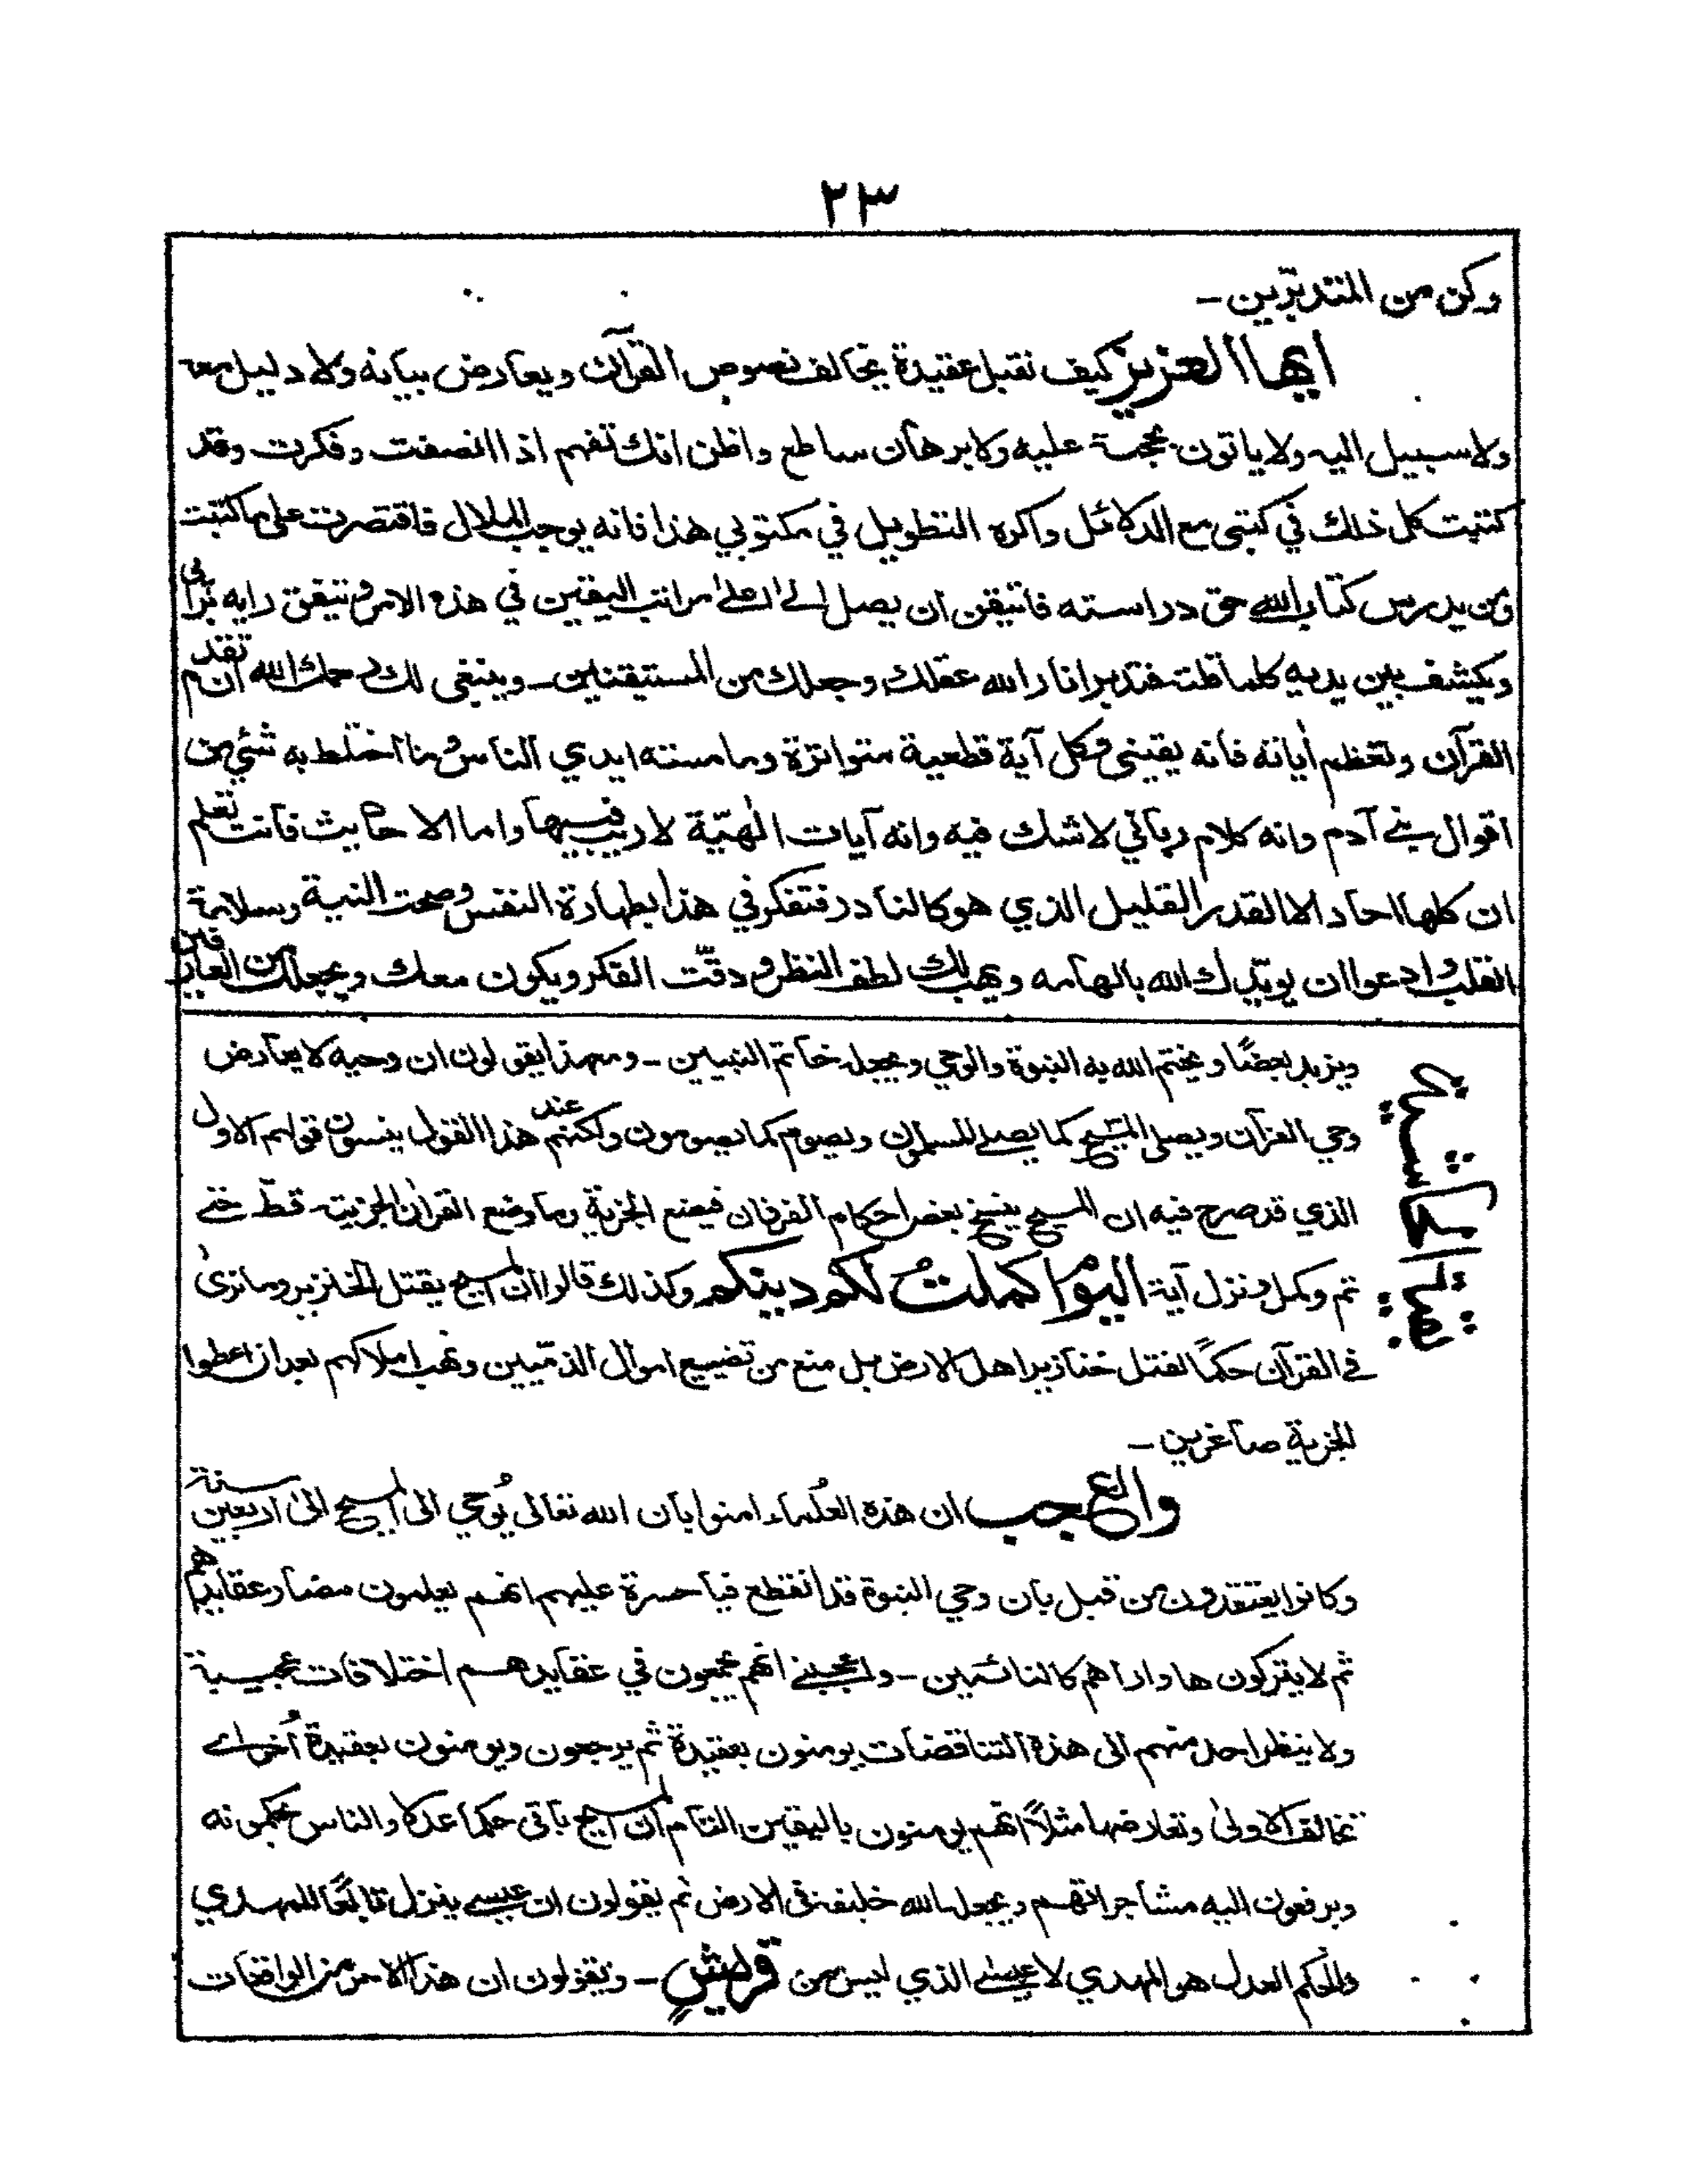 ٢٣
وكن من المتدبّرين ــ
ايها العزيز كيف نقبل عقيدة يخالف نصوص القرآن ويعارض بيانه ولا دليل معه
ولا سبيل اليه ولا ياتون بحجة عليه ولا برهان ساطع واظن انك تفهم اذا انصفت وفكرت وقد
كتبت كل ذلك في كتبي مع الدلائل واكره التطويل في مكتوبي هذا فانه يوجب الملال فاقتصرت على ما كتبت
ومن يدرس كتاب الله حق دراسته فاتيقن ان يصل الى اعلى مراتب اليقين في هذه الامر ويتفق رايه برأيي
ويكشف بين يديه كلما قلت فتدبر انار الله عقلك وجعلك من المستيقنين ــ وينبغي لك رحمك الله ان تقدم
القرآن وتعظم أياته فانه يقيني وكل آية قطعية متواترة وما مسته ايدي الناس وما اختلط به شئي من
اقوال بني آدم وانه كلام رباني لا شك فيه وانه آيات الٰهيّة لا ريب فيها واما الاحاديث فانت تعلم
ان كلها احاد الا القدر القليل الذي هو كالنادر فتفكر في هذا بطهارة النفس وصحت النية وسلامة
القلب وادعوا ان يويّدك الله بالهامه ويهب لك لطف النظر ودقّت الفكر ويكون معك ويجعلك من العارفين
بقية الحاشية
ويزيد بعضًا ويختم الله به النبوة والوحي ويجعله خاتم النبيين ــ ومع هذا يقولون ان وحيه لا يعارض
وحي القرآن ويصلي المسيح كما يصلي المسلمون ويصوم كما يصومون ولكنهم عند هذا القول ينسون قولهم الاول
الذي قد صرح فيه ان المسيح ينسخ بعض احكام الفرقان فيضع الجزية وما وضع القرآن الجزية قطّ حتى
تم وكمل ونزل آية اليوم اكملت لكم دينكم وكذلك قالوا ان المسيح يقتل الخنزير وما نرىٰ
في القرآن حكمًا لقتل خنازير اهل الارض بل منع من تضييع اموال الذمّيين ونهب املاكهم بعد ان اعطوا
الجزية صاغرين ــ
والعجب ان هذه العُلماء امنوا بان الله تعالى يُوحي الى المسيح الىٰ اربعين سنة
وكانوا يعتقدون من قبل بان وحي النبوة قد انقطع فيا حسرة عليهم انهم يعلمون مضار عقايدهم
ثم لا يتركون ها واراهم كالنائمين ــ واعجبني انهم يجمعون في عقايدهم اختلافات عجيبة
ولا ينظر احد منهم الى هذه التناقضات يومنون بعقيدة ثم يرجعون ويومنون بعقيدة اُخرىٰ
تخالف الاولىٰ وتعارضها مثلاً انهم يومنون باليقين التام ان المسيح ياتي حكما عدلا والناس يحكمونه
ويرفعون اليه مشاجراتهم ويجعله الله خليفة في الارض ثم يقولون ان عيسى ينزل تابعًا للمهدي
والحكم العدل هو المهدي لا عيسى الذي ليس من قريشٍ ــ ويقولون ان هذا الامر من الواقعات